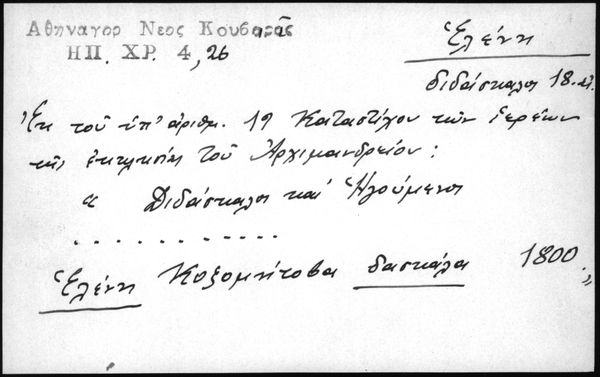 Αθηναγορ Νεος Κουβαρᾶς
ΗΠ. ΧΡ. 4, 26
Ἑλένη
διδάσκαλοι 18.
Ἐκ τοῦ ὑπ' ἀριθμ. 19 Καταστίχου τῶν ἱερέων
τῆς ἐκκλησίας τοῦ Ἀρχιμανδρείου:
" Διδάσκαλοι καὶ Ἡγούμενοι
. . . . . . . . . . . .
Ἑλένη δασκάλα 1800 "